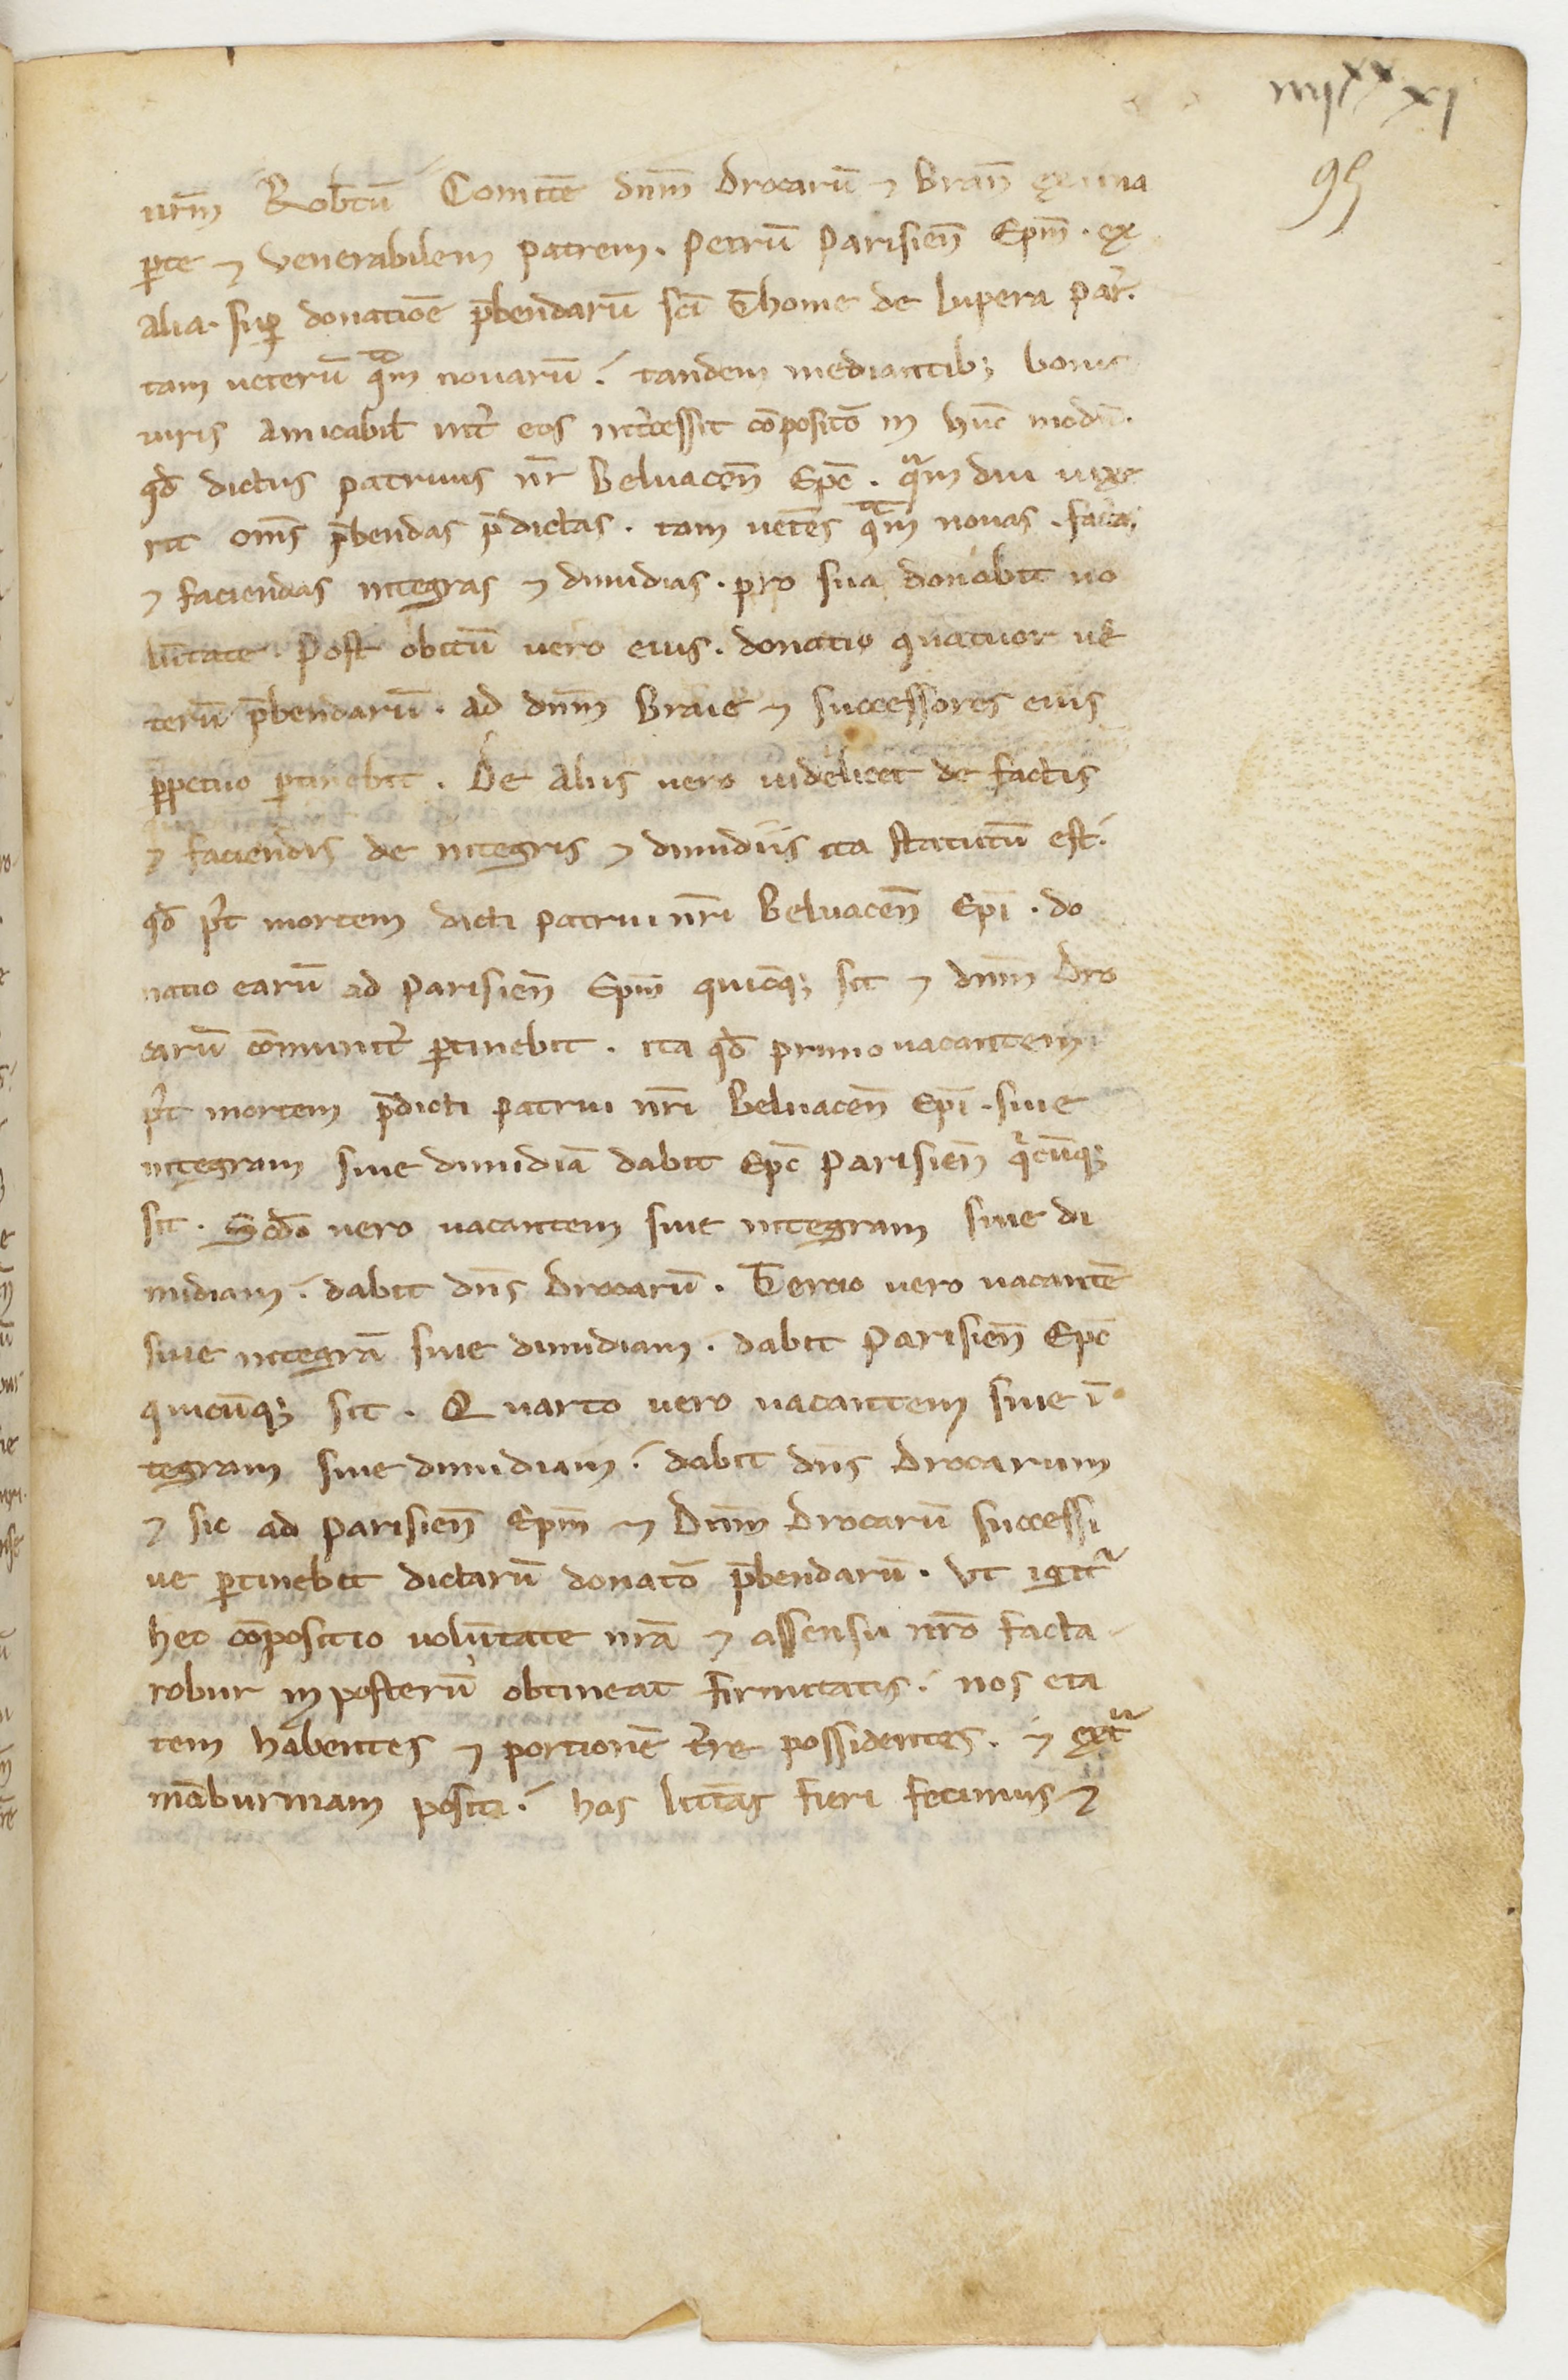 iiijxx xj
95
nrm̄ Rob̄tū Comitē dnm̄ Drocarū ⁊ Bran̄ ex una
ꝑte ⁊ venerabilem patrem. Petrū Parisien̄ Ep̄m. ex
alia. suꝑ donatiōe p̄bendarū sc̄i Thome de Lupera par̄.
tam veterū qᵃm novarū. tandem mediantibꝫ bonis
viris amicabil̄r int̄ eos int̄cessit cōpositō in hūc modū.
qd̄ dictus patruus nr̄ Belvacen̄ Ep̄c. qᵃm diu vixe
rit om̄s p̄bendas p̄dictas. tam vet̄es qᵃm novas. factas
⁊ faciendas integras ⁊ dimidias. pro sua donabit vo
lūtate. Post obitū vero eius. donatio quatuor ve
terū p̄bendarū. ad dnm̄ Braie ⁊ successores eius
ꝑpetuo ꝑtinebit. De aliis vero videlicet de factis
⁊ faciendis de integris ⁊ dimidiis ita statutū est.
qd̄ p̄t mortem dicti patrui nr̄i Belvacen̄ Ep̄i. do
natio earū ad Parisien̄ Ep̄m quicūqꝫ sit ⁊ dnm̄ Dro
carū cōmunit̄ ꝑtinebit. ita qd̄ primo vacantem
p̄t mortem p̄dicti patrui nr̄i Belvacen̄ Ep̄i. sive
integram sive dimidiā dabit Ep̄c Parisien̄ qⁱcūqꝫ
sit. Scd̄o vero vacantem sive integram sive di
midiam. dabit dn̄s Drocarū. Tercio vero vacantē
sive integrā sive dimidiam. dabit Parisien̄ Ep̄c
quicūqꝫ sit. Quarto vero vacantem sive ī
tegram sive dimidiam. dabit dn̄s Drocarum
⁊ sic ad Parisien̄ Ep̄m ⁊ Dnm̄ Drocarū successi
ve ꝑtinebit dictarū donatō p̄bendarū. Ut igit̄
hec cōpositio volūtate nr̄a ⁊ assensu nr̄o facta
robur in posterū obtineat firmitatis. nos eta
tem habentes ⁊ portionē t̄re possidentes. ⁊ extᵃ
māburniam positi. has litt̄as fieri fecimus ⁊